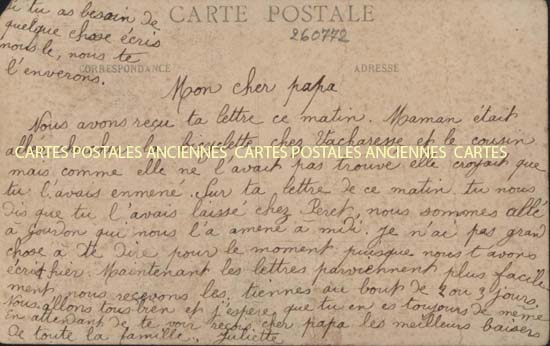 CARTE POSTALE
260772
CORRESPONDANCE
ADRESSE
si tu as besoin de
quelque chose écris
nous le, nous te
l'enverons.
Mon cher papa
Nous avons reçu ta lettre ce matin. Maman était
allé chercher la bicyclette chez Vacharesse et le cousin
CARTES POSTALES ANCIENNES CARTES POSTALES ANCIENNES CARTES
mais comme elle ne l'avait pas trouve elle croyait que
tu l'avais enmené. Sur ta lettre de ce matin tu nous
dis que tu l'avais laissé chez Peret, nous sommes allé
à Jourdon qui nous l'a amené a midi. je n'ai pas grand
chose a te dire pour le moment puisque nous t'avons
écrit hier. Maintenant les lettres parviennent plus facile
ment, nous recevons les tiennes au bout de 2 ou 3 jours.
Nous allons tous bien et j'espère que tu en es toujours de meme
En attendant de te voir reçois cher papa les meilleurs baisers
de toute la famille. Juliette